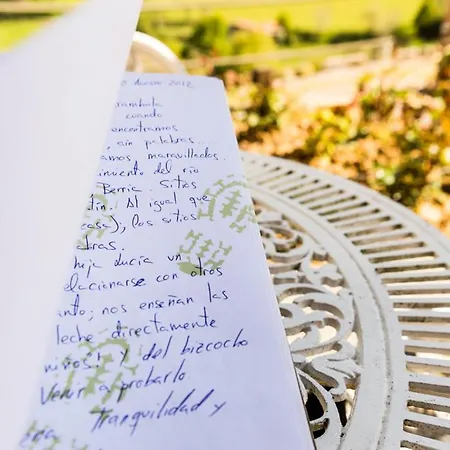 2012
cuando
encontramos
sin palabras.
amos, maravillados.
del río
Berria. Sitios
Al igual que
casa); los sitios
hija lucía un
elacionarse con otros
anto; nos enseñan las
leche directamente
niños! y del bizcocho
Venir a probarlo.
Tranquilidad y